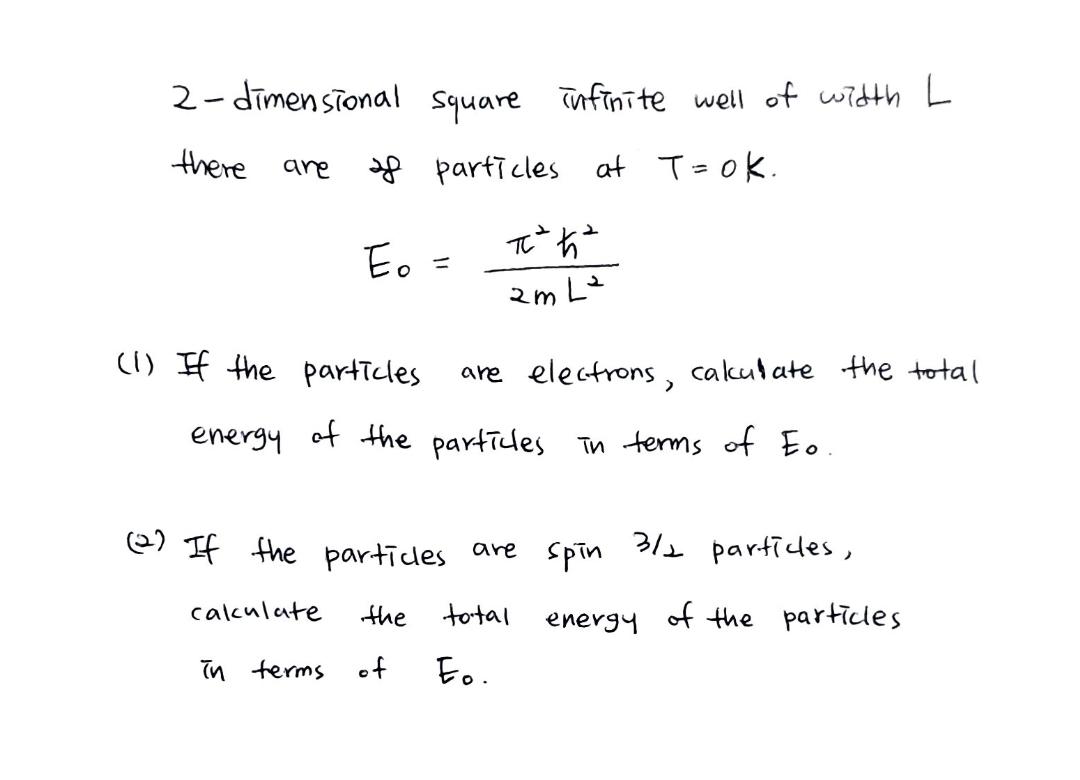 2-dimensional square infinite well of width L
there are particles at T=0K.
E₀ = π²ħ² / 2mL²
(1) If the particles are electrons, calculate the total
energy of the particles in terms of E₀.
(2) If the particles are spin 3/2 particles,
calculate the total energy of the particles
in terms of E₀.